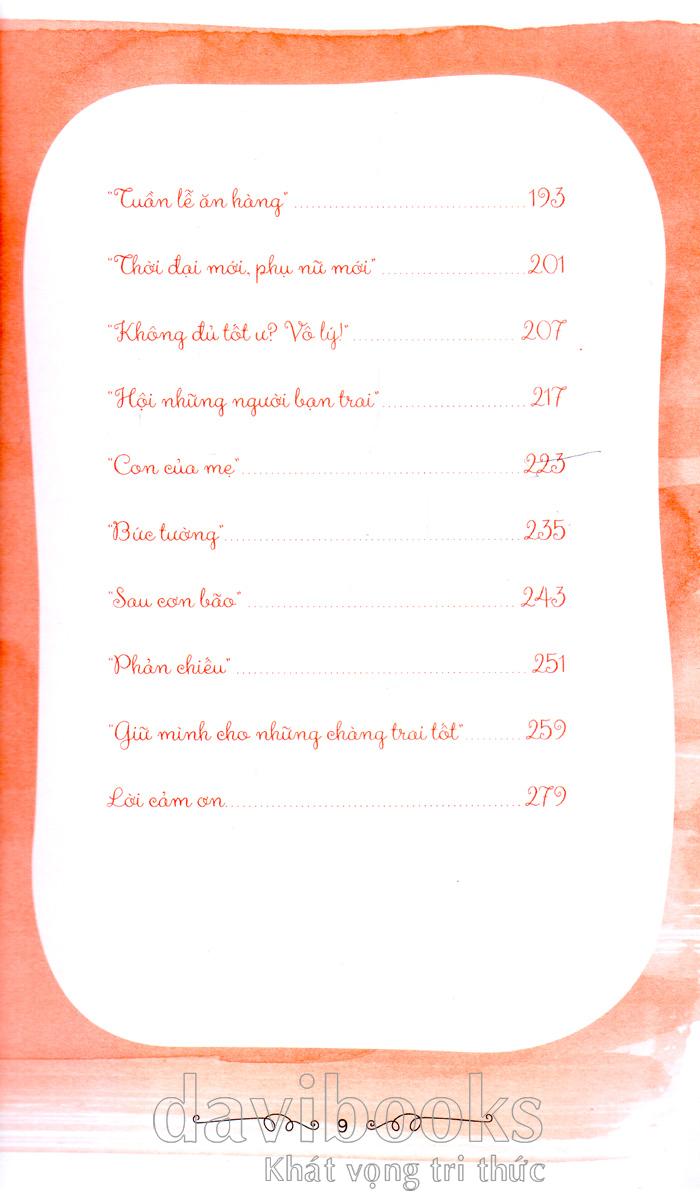 "Tuần lễ ăn hàng" ........ 193
"Thời đại mới, phụ nữ mới" ........ 201
"Không đủ tốt ư? Vô lý!" ........ 207
"Hội những người bạn trai" ........ 217
"Con của mẹ" ........ 223
"Bức tường" ........ 235
"Sau cơn bão" ........ 243
"Phản chiếu" ........ 251
"Giữ mình cho những chàng trai tốt" ........ 259
Lời cảm ơn ........ 279
davibooks
9
Khát vọng tri thức